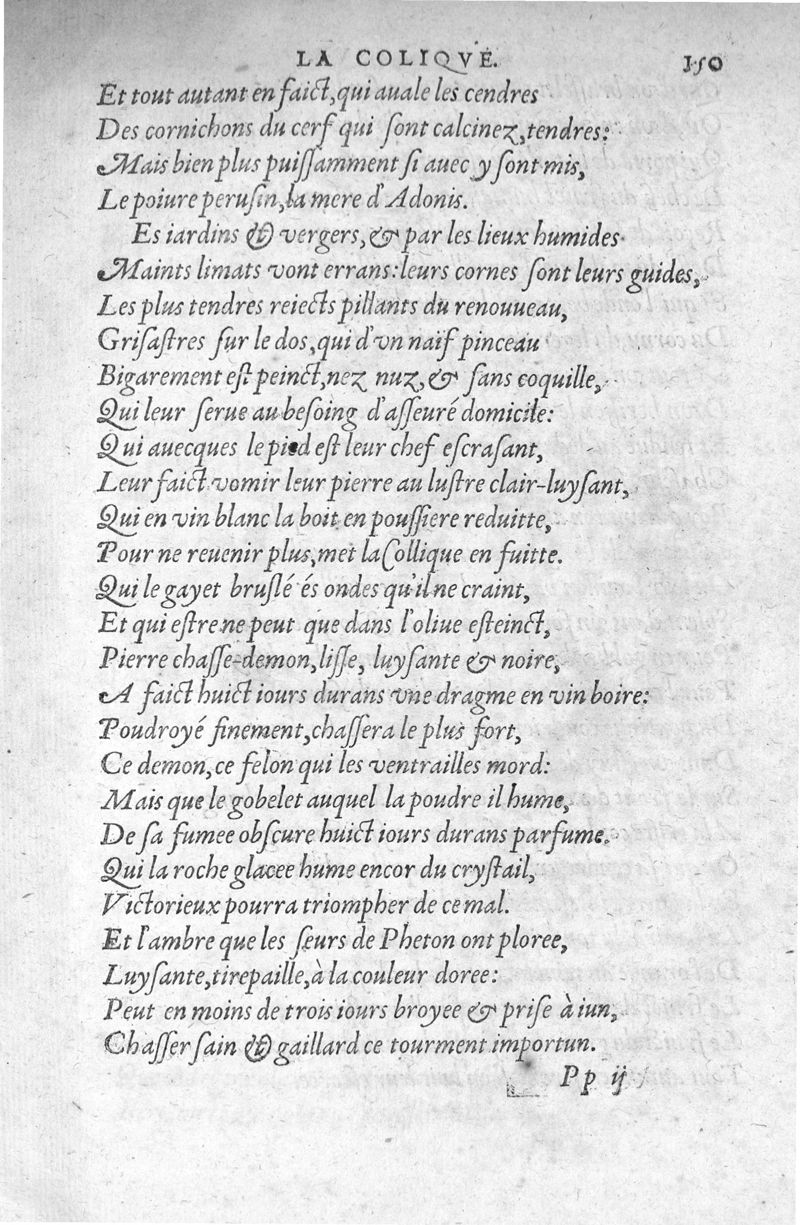 LA COLIQVE. 150
Et tout autant en faict, qui auale les cendres
Des cornichons du cerf qui ſont calcinez, tendres:
Mais bien plus puiſſamment ſi auec y ſont mis,
Le poiure peruſin, la mere d'Adonis.
Es iardins & vergers, & par les lieux humides
Maints limats vont errans: leurs cornes ſont leurs guides,
Les plus tendres reiects pillants du renouueau,
Griſaſtres ſur le dos, qui d'vn naïf pinceau
Bigarement eſt peinct, nez nuz, & ſans coquille,
Qui leur ſerue au beſoing d'aſſeuré domicile:
Qui auecques le pied eſt leur chef eſcraſant,
Leur faict vomir leur pierre au luſtre clair-luyſant,
Qui en vin blanc la boit en pouſſiere reduitte,
Pour ne reuenir plus, met la Collique en fuitte.
Qui le gayet bruſlé és ondes qu'il ne craint,
Et qui eſtre ne peut que dans l'oliue eſteinct,
Pierre chaſſe-demon, liſſe, luyſante & noire,
A faict huict iours durans vne dragme en vin boire:
Poudroyé finement, chaſſera le plus fort,
Ce demon, ce felon qui les ventrailles mord:
Mais que le gobelet auquel la poudre il hume,
De ſa fumee obſcure huict iours durans parfume.
Qui la roche glacee hume encor du cryſtail,
Victorieux pourra triompher de ce mal.
Et l'ambre que les ſeurs de Pheton ont ploree,
Luyſante, tirepaille, à la couleur doree:
Peut en moins de trois iours broyee & priſe à iun,
Chaſſer ſain & gaillard ce tourment importun.
Pp ij